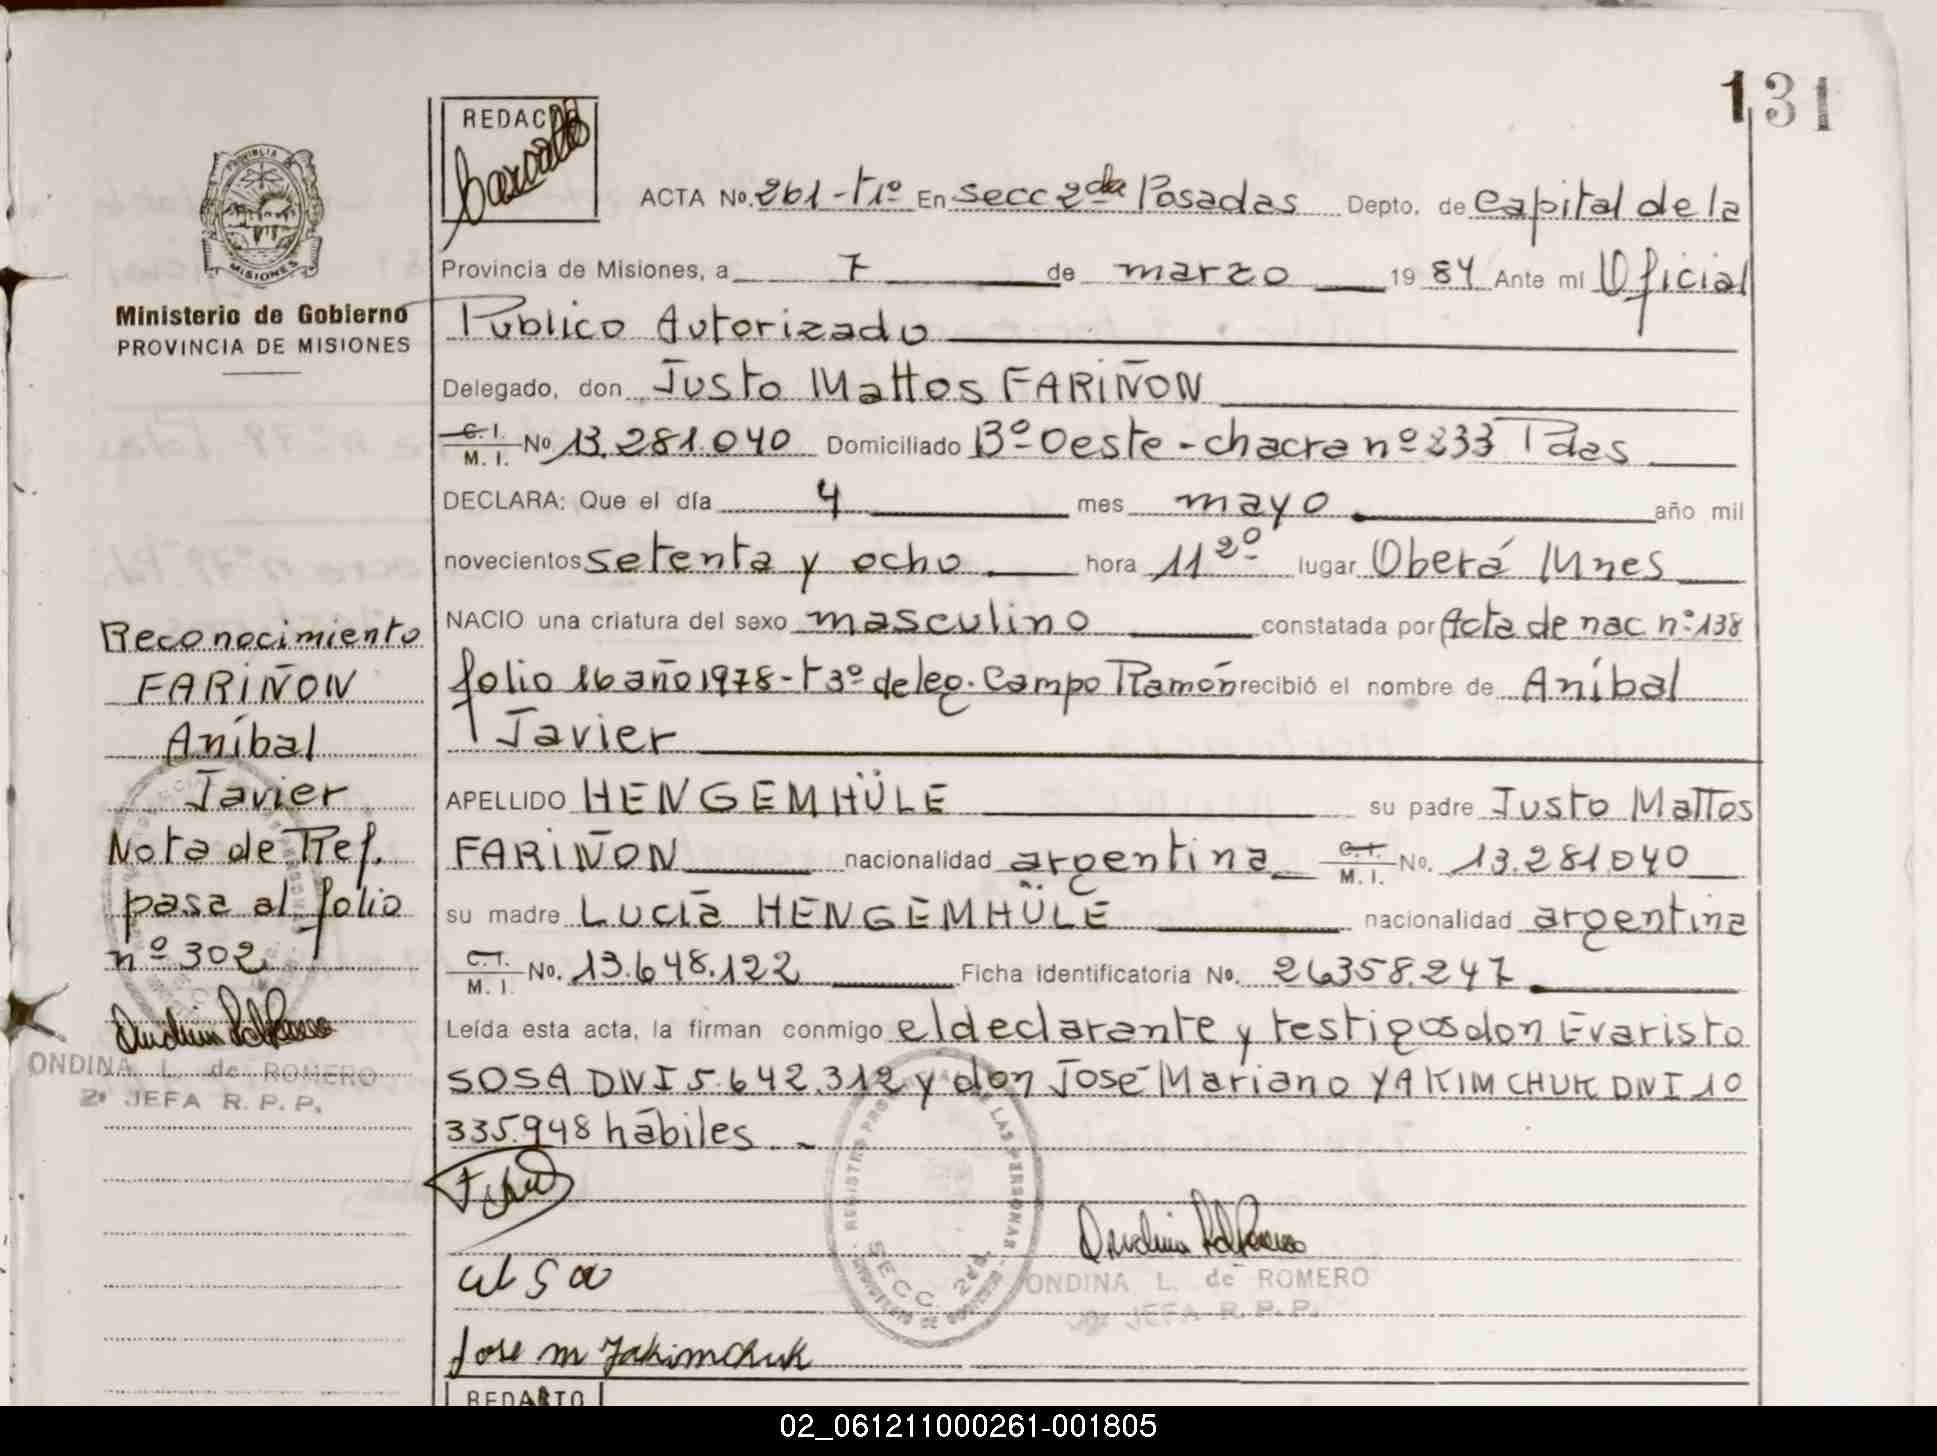 131
REDACTO
Carvallo
PROVINCIA
MISIONES
Ministerio de Gobierno
PROVINCIA DE MISIONES
ACTA No. 261-t1º En secc 2da Posadas Depto. de Capital de la
Provincia de Misiones, a 7 de marzo 1984 Ante mí Oficial
Publico Autorizado
Delegado, don Justo Mattos FARIÑON
C. I. M. I. No. 13.281.040 Domiciliado Bº Oeste - chacra nº 233 Pdas
DECLARA: Que el día 4 mes mayo año mil
novecientos setenta y ocho hora 11 20 lugar Oberá Mnes
NACIO una criatura del sexo masculino constatada por Acta de nac nº 138
folio 16 año 1978 - t 3º deleg. Campo Ramón recibió el nombre de Aníbal
Javier
APELLIDO HENGEMHÜLE su padre Justo Mattos
FARIÑON nacionalidad argentina C. I. M. I. No. 13.281.040
su madre Lucía HENGEMHÜLE nacionalidad argentina
C. I. M. I. No. 13.648.122 Ficha identificatoria No. 26358.247
Leída esta acta, la firman conmigo el declarante y testigos don Evaristo
SOSA DNI 5.642.312 y don José Mariano YAKIMCHUK DNI 10
335.948 hábiles
Jose m Yakimchuk
ONDINA L. de ROMERO
2ª JEFA R. P. P.
SECC 2da
REDACTO
Reconocimiento
FARIÑON
Aníbal
Javier
Nota de Ref.
pasa al folio
nº 302
ONDINA L. de ROMERO
2ª JEFA R. P. P.
02_061211000261-001805